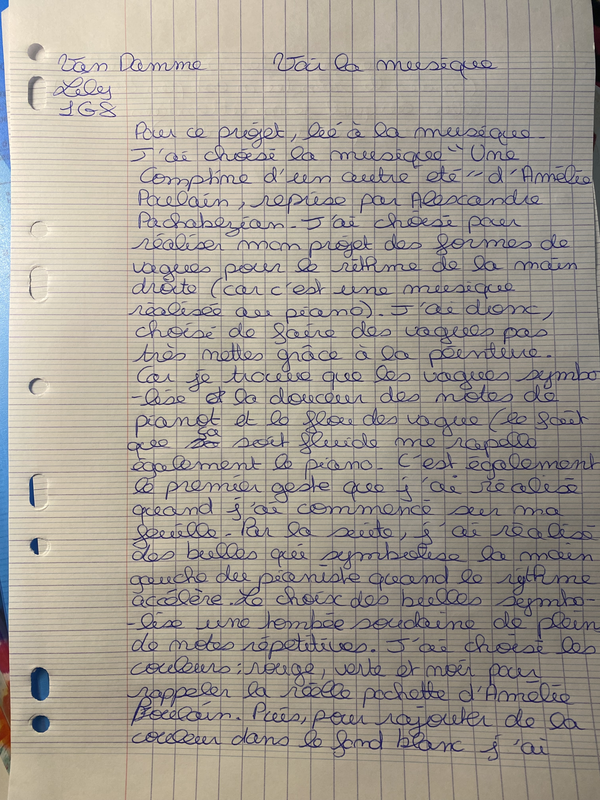 Van Damme Voir la musique
Lily
1G8
Pour ce projet, lié à la musique.
J'ai choisi la musique "Une
Comptine d'un autre été" d'Amélie
Poulain, reprise par Alexandre
Pachabezian. J'ai choisi pour
réaliser mon projet des formes de
vagues pour le rithme de la main
droite (car c'est une musique
réalisée au piano). J'ai donc,
choisi de faire des vagues pas
très nettes grâce à la peinture.
Car je trouve que les vagues symbo-
-lise et la douceur des notes de
pianot et le flou des vague (le fait
que ça soit fluide me rapelle
également le piano. C'est également
le premier geste que j'ai réalisé
quand j'ai commencé sur ma
feuille. Par la suite, j'ai réalisé
des bulles qui symbolise la main
gauche du pianiste quand le rythme
accélère. Le choix des bulles symbo-
-lise une tombée soudaine de plein
de notes répétitives. J'ai choisi les
couleurs : rouge, verte et noir pour
rappeler la réelle pochette d'Amélie
Poulain. Puis, pour rajouter de la
couleur dans le fond blanc j'ai